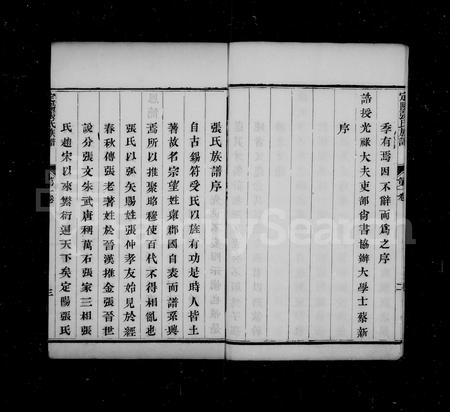 季有焉因不辭而為之序
誥授光祿大夫吏部尚書協辦大學士蔡新
序
張氏族譜序
自古錫符受氏以族有功是時人皆土
著故名宗望姓稟郡國自表而譜系興
焉所以推聚昭穆使百代不得相亂也
張氏以弧矢賜姓張仲孝友始見於經
春秋傳張老著姓於晉漢推金張晉世
說分張文朱武唐稱萬石張家三相張
氏趙宋以來繁衍遍天下矣定陽張氏
定陽張氏族譜
第一卷
二
三